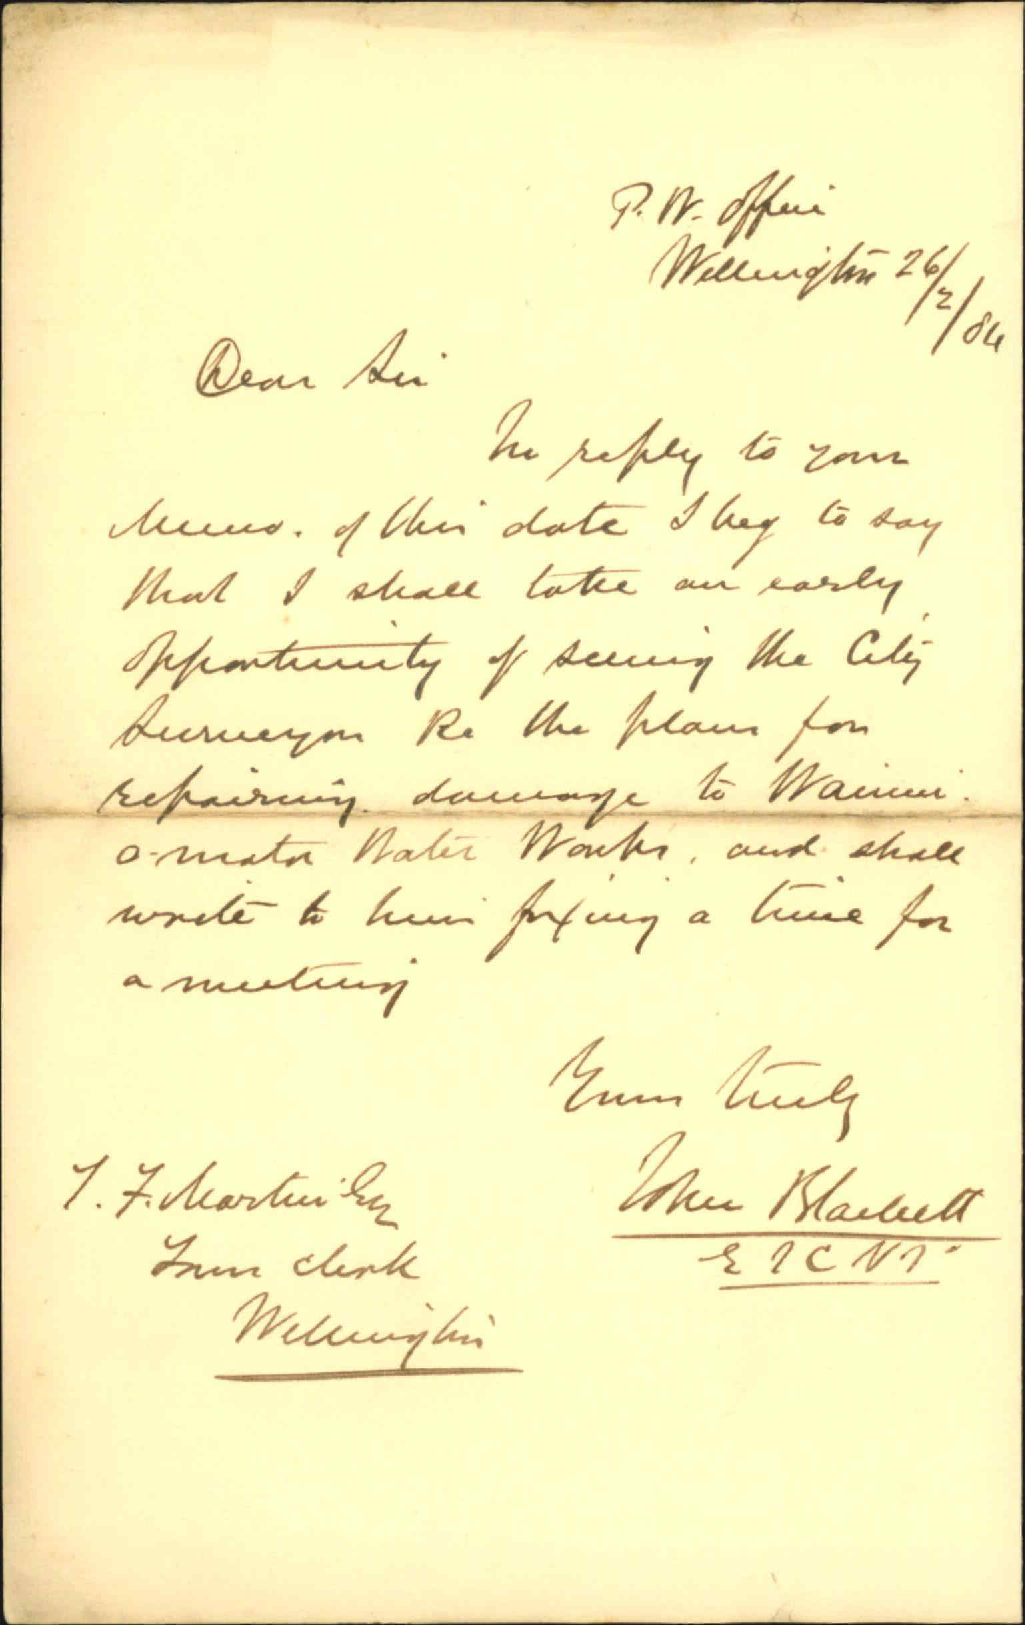 P. W. Office
Wellington 26/2/84
Dear Sir
In reply to your
Memo. of this date I beg to say
that I shall take an early
opportunity of seeing the City
Surveyor Re the plans for
repairing damage to Wainui-
o-mata Water Works, and shall
write to him fixing a time for
a meeting
Yours truly
John Blackett
E I C N Z
T. F. Martin Esq
Town Clerk
Wellington